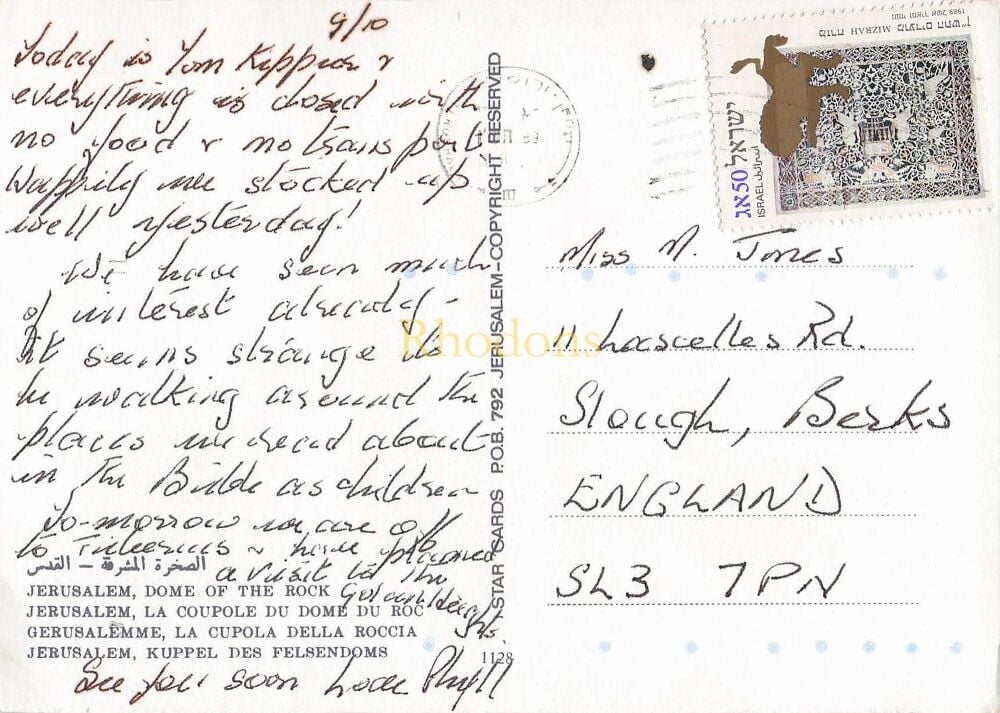 9/10
Today is Yom Kippur &
everything is closed with
no food & no transport.
Happily we stocked up
well yesterday!
We have seen much
of interest already -
it seems strange to
be walking around the
places we read about
in the Bible as children
To-morrow we are off
to Tiberius & have planned
a visit to the
Golan Heights.
الصخرة المشرفة – القدس
JERUSALEM, DOME OF THE ROCK
JERUSALEM, LA COUPOLE DU DOME DU ROC
GERUSALEMME, LA CUPOLA DELLA ROCCIA
JERUSALEM, KUPPEL DES FELSENDOMS
1128
See you soon Love Phyll
STAR CARDS P.O.B. 792 JERUSALEM–COPYRIGHT RESERVED
Rhodons
89
מועדים התש"ן MIZRAH מזרח
1989
ישראל 50 אג
اسرائيل
ISRAEL
Miss M. Jones
11 Lascelles Rd.
Slough, Berks
ENGLAND
SL3 7PN